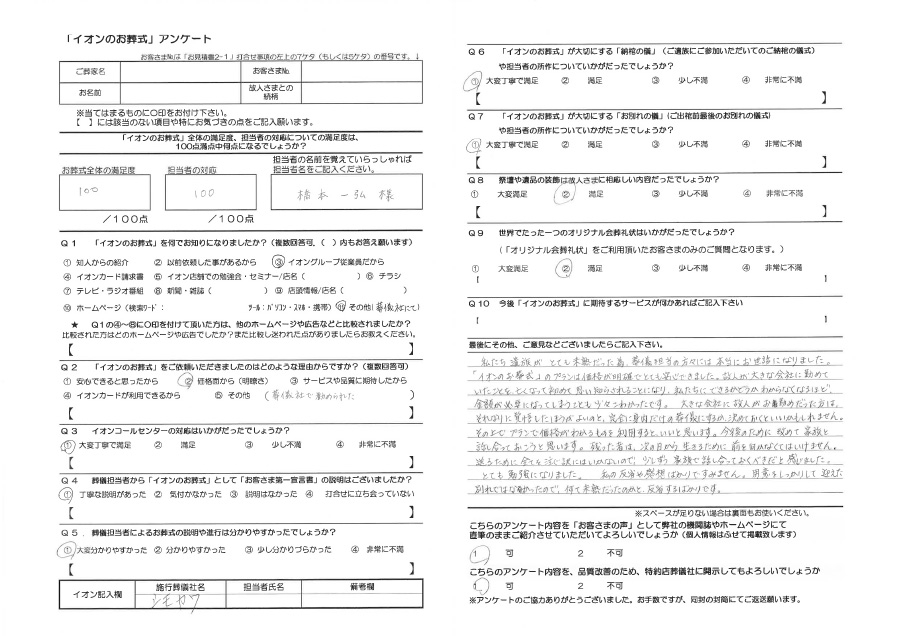 「イオンのお葬式」アンケート
お客さま№は「お見積書2-1」打合せ事項の左上の7ケタ（もしくは5ケタ）の番号です。↓
ご葬家名 お客さま№
お名前 故人さまとの続柄
※当てはまるものに○印をお付け下さい。
【　】には該当のない項目や特にお気づきの点をご記入願います。
「イオンのお葬式」全体の満足度、担当者の対応についての満足度は、
100点満点中何点になるでしょうか？
お葬式全体の満足度 担当者の対応 担当者の名前を覚えていらっしゃれば
担当者名をご記入ください。
100 100 橋本 一弘 様
／100点 ／100点
Q1 「イオンのお葬式」を何でお知りになりましたか？（複数回答可、（　）内もお答え願います）
① 知人からの紹介 ② 以前依頼した事があるから ③ イオングループ従業員だから
④ イオンカード請求書 ⑤ イオン店舗での勉強会・セミナー/店名（　） ⑥ チラシ
⑦ テレビ・ラジオ番組 ⑧ 新聞・雑誌（　） ⑨ 店頭情報/店名（　）
⑩ ホームページ（検索ワード：　ツール：パソコン・スマホ・携帯） ⑪ その他（葬儀社にて）
★ Q1の④～⑩に○印を付けて頂いた方は、他のホームページや広告などと比較されましたか？
比較された方はどのホームページや広告でしたか？また比較し迷われた点がありましたらお教えください。
【　】
Q2 「イオンのお葬式」をご依頼いただきましたのはどのような理由からですか？（複数回答可）
① 安心できると思ったから ② 価格面から（明瞭さ） ③ サービスや品質に期待したから
④ イオンカードが利用できるから ⑤ その他（葬儀社で勧められた）
【　】
Q3 イオンコールセンターの対応はいかがだったでしょうか？
① 大変丁寧で満足 ② 満足 ③ 少し不満 ④ 非常に不満
【　】
Q4 葬儀担当者から「イオンのお葬式」として「お客さま第一宣言書」の説明はございましたか？
① 丁寧な説明があった ② 気付かなかった ③ 説明はなかった ④ 打合せに立ち会っていない
【　】
Q5． 葬儀担当者によるお葬式の説明や進行は分かりやすかったでしょうか？
① 大変分かりやすかった ② 分かりやすかった ③ 少し分かりづらかった ④ 非常に不満
【　】
イオン記入欄 施行葬儀社名 担当者氏名 備考欄
シモカワ
Q6 「イオンのお葬式」が大切にする「納棺の儀」（ご遺族にご参加いただいてのご納棺の儀式）
や担当者の所作についていかがだったでしょうか？
① 大変丁寧で満足 ② 満足 ③ 少し不満 ④ 非常に不満
【　】
Q7 「イオンのお葬式」が大切にする「お別れの儀」（ご出棺前最後のお別れの儀式）
や担当者の所作についていかがだったでしょうか？
① 大変丁寧で満足 ② 満足 ③ 少し不満 ④ 非常に不満
【　】
Q8 祭壇や遺品の装飾は故人さまに相応しい内容だったでしょうか？
① 大変満足 ② 満足 ③ 少し不満 ④ 非常に不満
【　】
Q9 世界でたった一つのオリジナル会葬礼状はいかがだったでしょうか？
（「オリジナル会葬礼状」をご利用頂いたお客さまのみのご質問となります。）
① 大変満足 ② 満足 ③ 少し不満 ④ 非常に不満
【　】
Q10 今後「イオンのお葬式」に期待するサービスが何かあればご記入下さい
【　】
最後にその他、ご意見などございましたらご記入下さい。
私たち遺族がとても未熟だった為、葬儀担当の方々には本当にお世話になりました。
「イオンのお葬式」のプランは価格が明確でとても安心できました。故人が大きな会社に勤めて
いたことを、亡くなって初めて思い知らされることになり、私たちにできるかどうかわからなくなるほど、
金額が必要になってしまうことも少々こわかったです。 大きな会社に故人がお勤めだった方は、
それなりに覚悟したほうがよいのと、完全に身内だけの葬儀にするか、決めておくといいかもしれません。
その上でプランで価格がわかるものを利用すると、いいと思います。今後のために改めて家族と
話し合っておこうと思います。残った者は、次の日から生きるために前を向かなくてはいけません。
送るために全てを注ぐ訳にはいかないので、少しずつ家族で話し合っておくべきだと感じました。
とても勉強になりました。 私の反省や感想ばかりですみません。用意をしっかりして迎えた
別れではなかったので、何て未熟だったのかと、反省するばかりです。
※スペースが足りない場合は裏面もお使いください。
こちらのアンケート内容を「お客さまの声」として弊社の機関誌やホームページにて
直筆のままご紹介させていただいてよろしいでしょうか（個人情報はふせて掲載致します）
1 可 2 不可
こちらのアンケート内容を、品質改善のため、特約店葬儀社に開示してもよろしいでしょうか
1 可 2 不可
※アンケートのご協力ありがとうございました。お手数ですが、同封の封筒にてご返送願います。